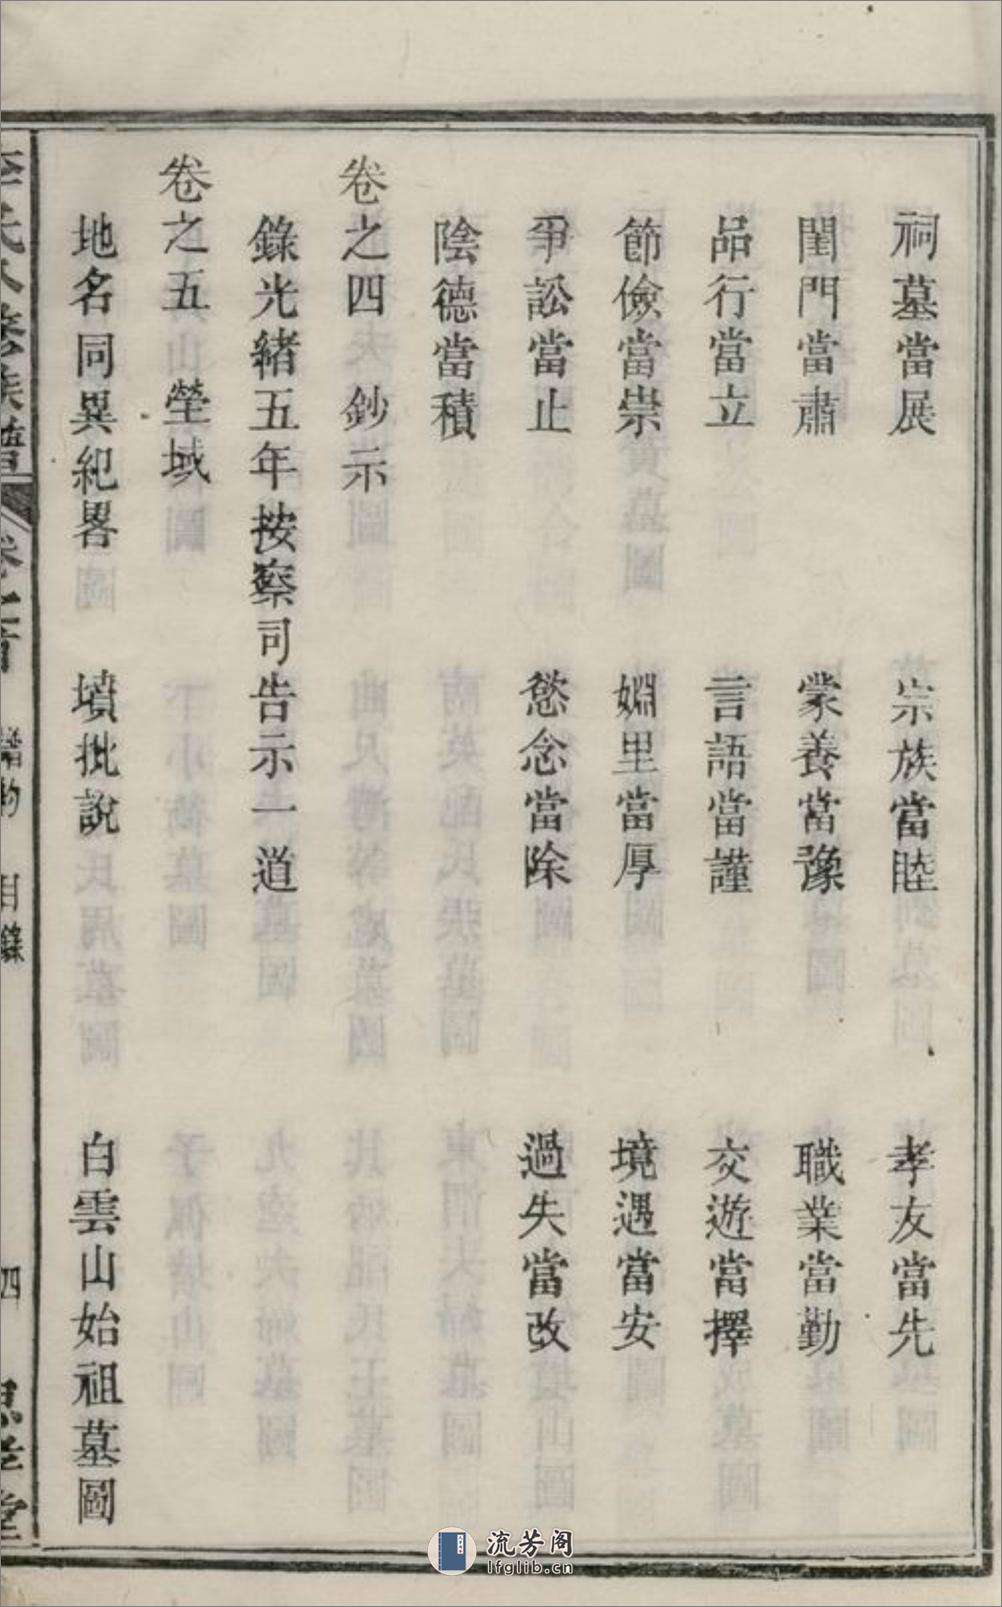 祠墓當展　宗族當睦　孝友當先
閨門當肅　蒙養當豫　職業當勤
品行當立　言語當謹　交遊當擇
節儉當崇　婣里當厚　境遇當安
爭訟當止　慾念當除　過失當改
陰德當積
卷之四　鈔示
錄光緒五年按察司告示一道
卷之五　塋域
地名同異紀畧　墳批說　白雲山始祖墓圖
氏 族譜 卷之首 目錄 四 堂
流芳阁
lfglib.cn